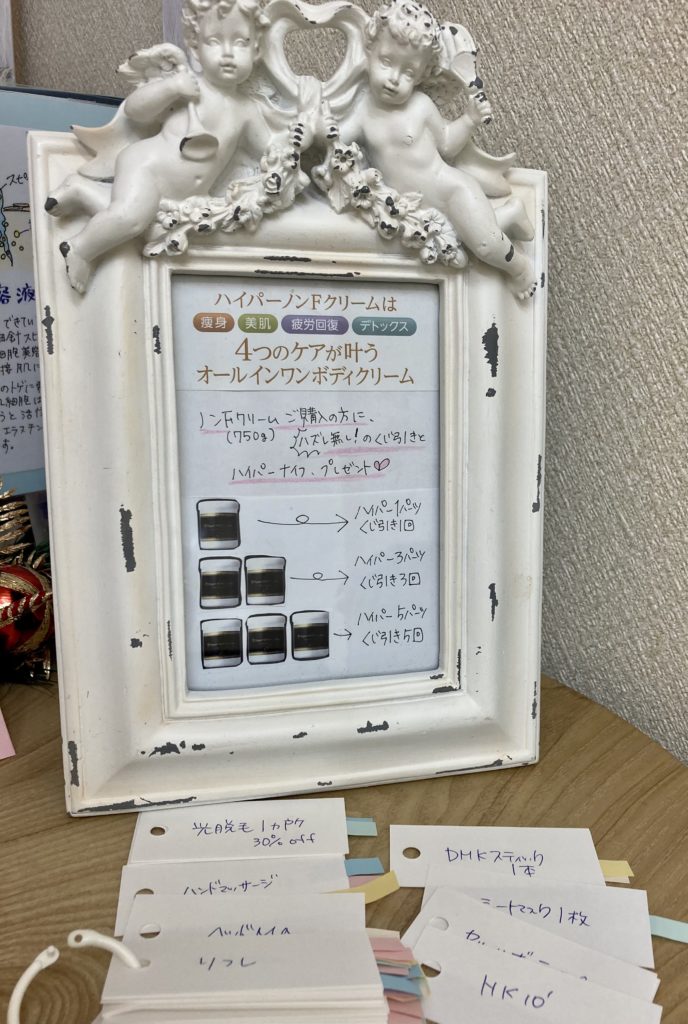 ハイパーノンFクリームは
痩身 美肌 疲労回復 デトックス
4つのケアが叶う
オールインワンボディクリーム
ノンFクリームご購入の方に、
(750g) ハズレ無し!のくじ引きと
ハイパーナイフ、プレゼント♡
ハイパー1パーツ
くじ引き1回
ハイパー3パーツ
くじ引き3回
ハイパー5パーツ
くじ引き5回
スピ
容液
できてい
針スピ
細胞美容
接肌に
のトゲに
細胞は
うと活
エラスチン
す。
光脱毛1カ所
30% off
ハンドマッサージ
リフレ
DHKスティック
1本
シートマスク1枚
HK10'